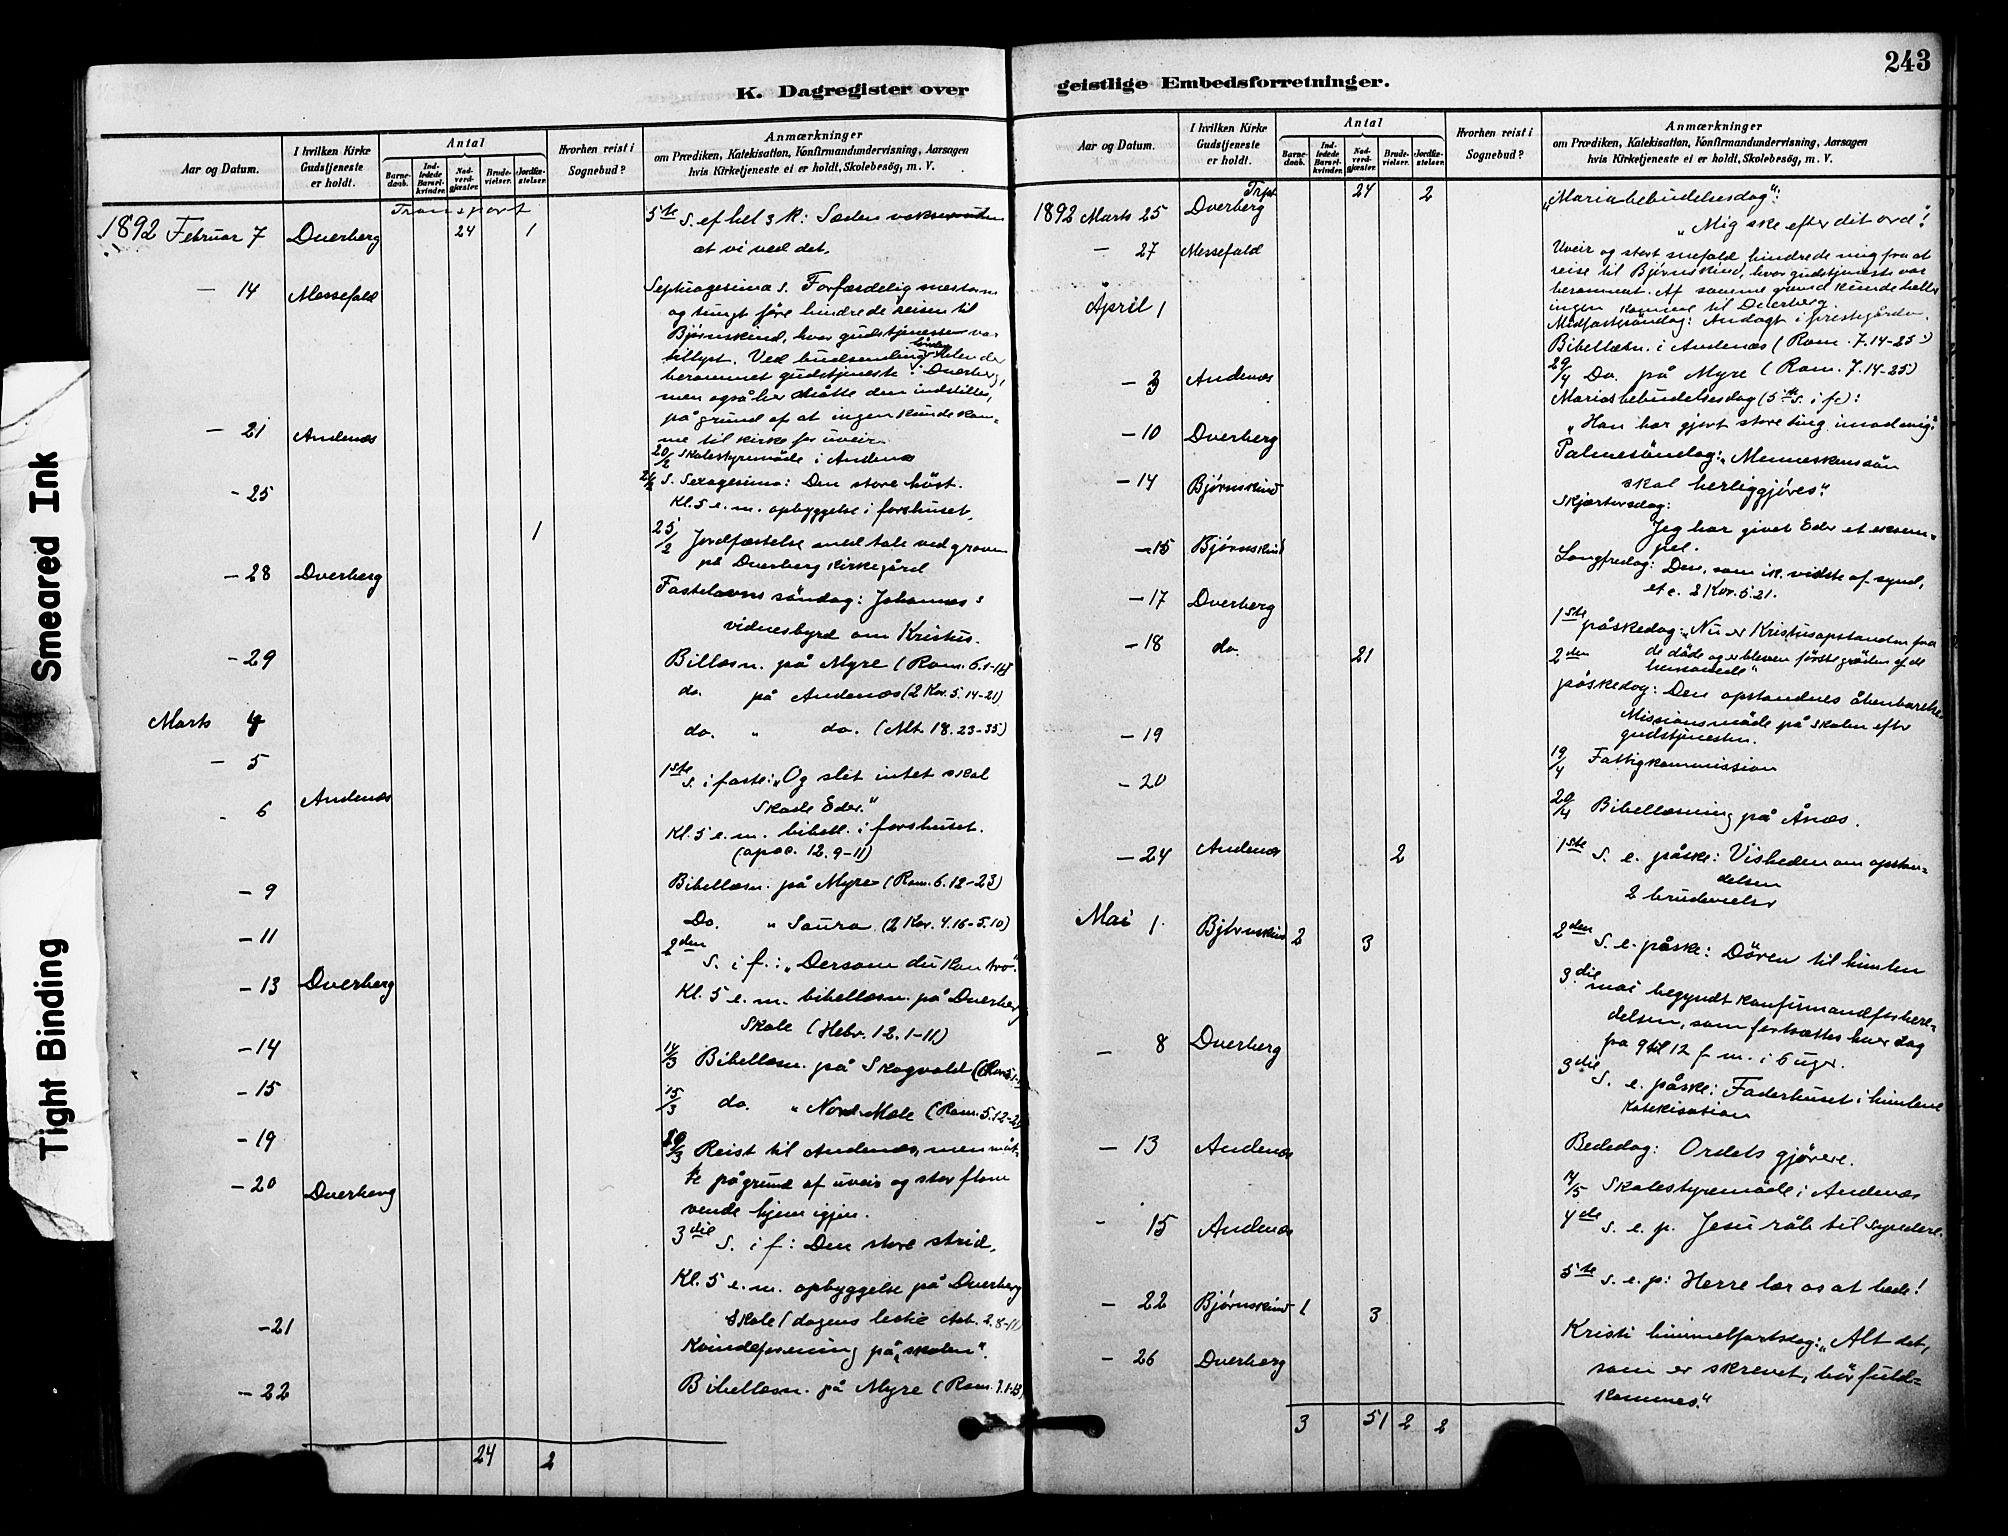 Smeared Ink
Tight Binding
K. Dagregister over
Aar og Datum.
I hvilken Kirke
Gudstjeneste
er holdt.
Antal
Barne-
daab.
Ind-
ledede
Barsel-
kvinder.
Nad-
verd-
gjæster.
Brude-
vielser.
Jordfæ-
stelser.
Hvorhen reist i
Sognebud?
Anmærkninger
om Prædiken, Katekisation, Konfirmandundervisning, Aarsagen
hvis Kirketjeneste ei er holdt, Skolebesög, m. V.
Transport
1892 Februar 7 Dverberg 24 1 5te S. ef hel 3 k: Sæden
at vi ved det.
- 14 Messefald Septuagesima S. Forfærdelig snestorm
og tungt føre hindrede reisen til
Bjørnskind, hvor gudstjenesten var
tillyst. Ved budsending blev der
berammet gudstjeneste i Dverberg,
men også her måtte den indstilles,
på grund af at ingen kunde kom-
me til kirke for uveir.
- 21 Andenæs 20/2 Skolestyremöde i Andenæs
S. Sexagesima: Den store höst.
Kl. 5 e. m. opbyggelse i forshuset.
- 25 1 25/2 Jordfæstelse med tale ved graven
på Dverberg kirkegård
- 28 Dverberg Fastelavns söndag: Johannes's
vidnesbyrd om Kristus.
- 29 Billæsn. på Myre (Rom. 6.1-14)
do. på Andenæs (2 Kor. 5. 14-21)
Marts 4 do. " do. (Mt. 18. 23-35)
- 5 1ste S. i faste: "Og slet intet skal
skade Eder."
- 6 Andenæs Kl. 5 e. m. bibell. i forshuset.
(apoc. 12. 9-11)
- 9 Bibellæsn. på Myre (Rom. 6. 12-23)
- 11 Do. " Saura (2 Kor. 4.16-5.10)
2den S. i f.: "Dersom du kan tro."
- 13 Dverberg Kl. 5 e. m. bibellæsn. på Dverberg
Skole (Hebr. 12. 1-11)
- 14 14/3 Bibellæsn. på Skogvold
- 15 15/3 do. " Nord-Mele (Rom. 5. 12-21)
- 19 Reist til Andenæs, men måt-
te på grund af uveir og stor flom
- 20 Dverberg vende hjem igjen.
3die S. i f: Den store strid.
Kl. 5 e. m. opbyggelse på Dverberg
Skole (dagens lectie
- 21 Kvindeforening på "skolen".
- 22 Bibellæsn. på Myre (Rom. 7.1-13)
24 2
243
geistlige Embedsforretninger.
Aar og Datum.
I hvilken Kirke
Gudstjeneste
er holdt.
Antal
Barne-
daab.
Ind-
ledede
Barsel-
kvinder.
Nad-
verd-
gjæster.
Brude-
vielser.
Jordfæ-
stelser.
Hvorhen reist i
Sognebud?
Anmærkninger
om Prædiken, Katekisation, Konfirmandundervisning, Aarsagen
hvis Kirketjeneste ei er holdt, Skolebesög, m. V.
Trpt 24 2
1892 Marts 25 Dverberg "Mariæ bebudelsesdag":
"Mig ske efter dit ord".
- 27 Messefald Uveir og stort snefald hindrede mig fra at
reise til Bjørnskind, hvor gudstjeneste var
berammet. Af samme grund kunde heller
ingen komme til Dverberg.
Midfastsöndag: Andagt i prestegården.
April 1 Bibellæsn. i Andenæs (Rom. 7. 14-25)
29/4 Do. på Myre (Rom. 7. 14-25)
- 3 Andenæs Mariæ bebudelsesdag (5te S. i f.):
"Han har gjort store ting imod mig".
- 10 Dverberg Palmesöndag: "Menneskens sön
skal herliggjöres".
- 14 Bjørnskind Skjærtorsdag:
Jeg har givet Eder et eksem-
pel.
- 15 Bjørnskind Langfredag: Den, som ik. vidste af synd,
etc. 2 Kor. 5. 21.
- 17 Dverberg 1ste påskedag: "Nu er Kristus opstanden fra
de döde og er bleven förstegröden af de
hensovede"
- 18 do. 21 2den påskedag: Den opstandnes åbenbarelse
Missionsmöde på Skolen efter
gudstjenesten.
- 19 19/4 Fattigkommission
- 20 20/4 Bibellæsning på Ånæs.
- 24 Andenæs 2 1ste S. e. påske: Visheden om opstan-
delsen
2 brudevielser
Mai 1 Bjørnskind 2 3 2den S. e. påske: Dören til himlen
3die mai begyndt konfirmandforbere-
delsen, som fortsættes hver dag
fra 9 til 12 f. m. i 6 uger.
- 8 Dverberg 3die S. e. påske: Faderhuset i himlene
Katekisation
- 13 Andenæs Bededag: Ordets gjörere.
14/5 Skolestyremöde i Andenæs
- 15 Andenæs 4de S. e. p. Jesu råb til Syndere.
- 22 Bjørnskind 1 3 5te S. e. p: Herre lær os at bede!
- 26 Dverberg Kristi himmelfartsdag: "Alt det,
som er skrevet, bör fuld-
kommes."
3 51 2 2